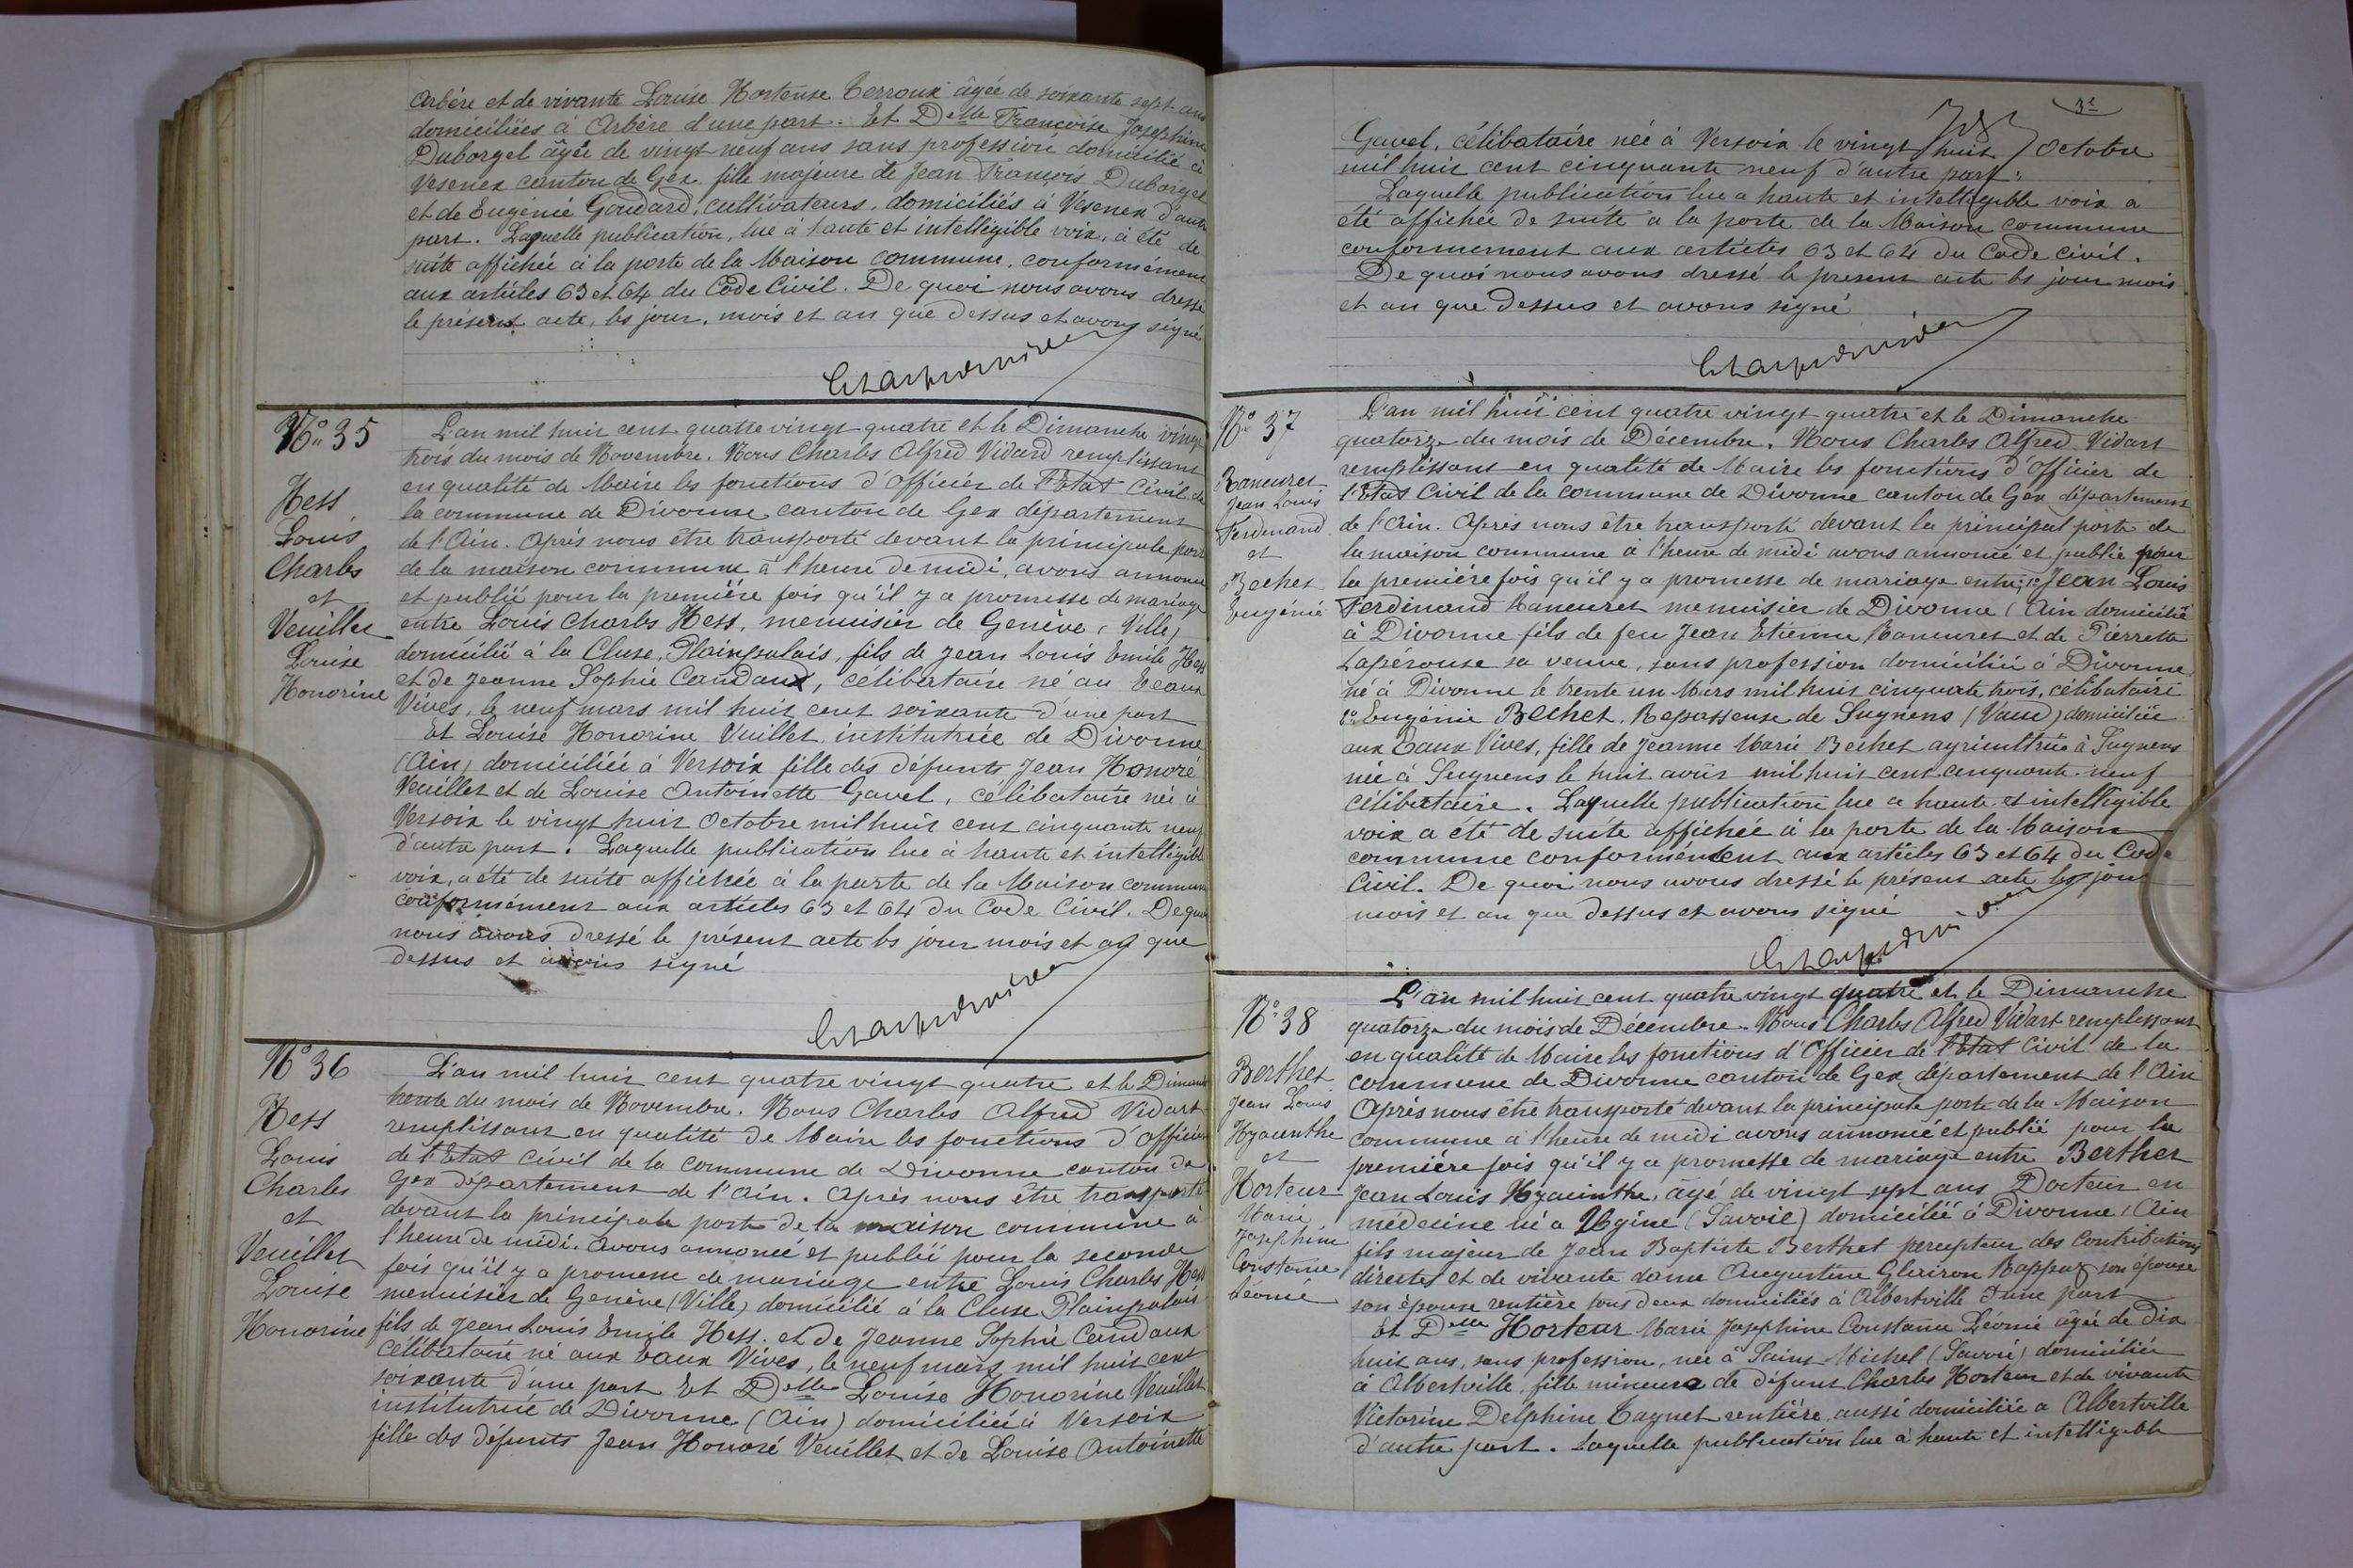 Arbère et de vivante Louise Hortense Terroux âgée de soixante sept ans
domiciliées à Arbère d'une part. Et Delle Françoise Joséphine
Duborgel âgée de vingt neuf ans sans profession domicilié à
Vesenex canton de Gex fille majeure de Jean François Duborgel
et de Eugénie Goudard, cultivateurs, domiciliés à Vesenex d'autre
part. Laquelle publication, lue à haute et intelligible voix, a été de
suite affichée à la porte de la Maison commune, conformément
aux articles 63 et 64 du Code Civil. De quoi nous avons dressé
le présent acte, les jour, mois et an que dessus et avons signé
No 35
Hess
Louis
Charles
et
Veuillet
Louise
Honorine
L'an mil huit cent quatre vingt quatre et le Dimanche vingt
trois du mois de Novembre. Nous Charles Alfred Vidard remplissant
en qualité de Maire les fonctions d'officier de l'Etat Civil de
la commune de Divonne canton de Gex département
de l'Ain. Après nous être transporté devant la principale porte
de la maison commune à l'heure de midi, avons annoncé
et publié pour la première fois qu'il y a promesse de mariage
entre Louis Charles Hess, menuisier de Genève (Ville)
domicilié à la Cluse, Plainpalais, fils de Jean Louis Emile Hess
et de Jeanne Sophie Candaux, célibataire né au Eaux
Vives, le neuf mars mil huit cent soixante d'une part
Et Louise Honorine Vuillet institutrice de Divonne
(Ain) domiciliée à Versoix fille des défunts Jean Honoré
Veuillet et de Louise Antoinette Gavel, célibataire née à
Versoix le vingt huit Octobre mil huit cent cinquante neuf
d'autre part. Laquelle publication lue à haute et intelligible
voix, a été de suite affichée à la porte de la Maison commune
conformément aux articles 63 et 64 du Code Civil. De quoi
nous avons dressé le présent acte les jour mois et an que
dessus et avons signé
No 36
Hess
Louis
Charles
et
Veuillet
Louise
Honorine
L'an mil huit cent quatre vingt quatre et le Dimanche
trente du mois de Novembre. Nous Charles Alfred Vidart
remplissant en qualité de Maire les fonctions d'officier
de l'Etat Civil de la commune de Divonne canton de
Gex département de l'Ain. Après nous être transporté
devant la principale porte de la maison commune à
l'heure de midi. Avons annoncé et publié pour la seconde
fois qu'il y a promesse de mariage entre Louis Charles Hess
menuisier de Genève (Ville) domicilié à la Cluse Plainpalais
fils de Jean Louis Emile Hess. et de Jeanne Sophie Candaux
célibataire né aux Eaux Vives, le neuf mars mil huit cent
soixante d'une part Et Delle Louise Honorine Veuillet
institutrice de Divonne (Ain) domiciliée à Versoix
fille des défunts Jean Honoré Veuillet et de Louise Antoinette
Gavel, célibataire née à Versoix le vingt huit Octobre
mil huit cent cinquante neuf d'autre part.
Laquelle publication lue a haute et intelligible voix a
été affichée de suite a la porte de la Maison commune
conformément aux articles 63 et 64 du Code civil.
De quoi nous avons dressé le présent acte les jour mois
et an que dessus et avons signé
No 37
Rancuret
Jean Louis
Ferdinand
et
Bechet
Eugénie
L'an mil huit cent quatre vingt quatre et le Dimanche
quatorze du mois de Décembre. Nous Charles Alfred Vidart
remplissant en qualité de Maire les fonctions d'officier de
l'Etat Civil de la commune de Divonne canton de Gex département
de l'Ain. Après nous être transporté devant la principal porte de
la maison commune à l'heure de midi avons annoncé et publié pour
la première fois qu'il y a promesse de mariage entre, 1o Jean Louis
Ferdinand Rancuret menuisier de Divonne (Ain domicilié
à Divonne fils de feu Jean Etienne Rancuret et de Pierrette
Lapérouse sa veuve, sans profession domiciliée à Divonne
né à Divonne le trente un Mars mil huit cinquate trois, célibataire
2o Eugénie Bechet. Repasseuse de Sugnens (Vaud) domiciliée
aux Eaux Vives, fille de Jeanne Marie Bechet agricultrice à Sugnens
née à Sugnens le huit août mil huit cent cinquante neuf
célibataire. Laquelle publication lue a haute et intelligible
voix a été de suite affichée à la porte de la Maison
commune conformément aux articles 63 et 64 du Code
Civil. De quoi nous avons dressé le présent acte les jour
mois et an que dessus et avons signé
No 38
Berthet
Jean Louis
Hyacinthe
et
Horteur
Marie
Joséphine
Constance
Léonie
L'an mil huit cent quatre vingt quatre et le Dimanche
quatorze du mois de Décembre. Nous Charles Alfred Vidart remplissant
en qualité de Maire les fonctions d'Officier de l'Etat Civil de la
commune de Divonne canton de Gex département de l'Ain
Après nous être transporté devant la principale porte de la Maison
commune à l'heure de midi avons annoncé et publié pour la
première fois qu'il y a promesse de mariage entre Berthet
Jean Louis Hyacinthe, âgé de vingt sept ans Docteur en
médecine né à Ugine (Savoie) domicilié à Divonne (Ain
fils majeur de Jean Baptiste Berthet percepteur des Contributions
directes et de vivante dame Augustine Glairon Rappaz son épouse
son épouse rentière tous deux domiciliés à Albertville d'une part
Et Delle Horteur Marie Joséphine Constance Léonie âgée de dix
huit ans, sans profession, née à Saint Michel (Savoie) domiciliée
à Albertville, fille mineure de défunt Charles Horteur et de vivante
Victorine Delphine Cagnet rentière aussi domiciliée à Albertville
d'autre part. Laquelle publication lue à haute et intelligible